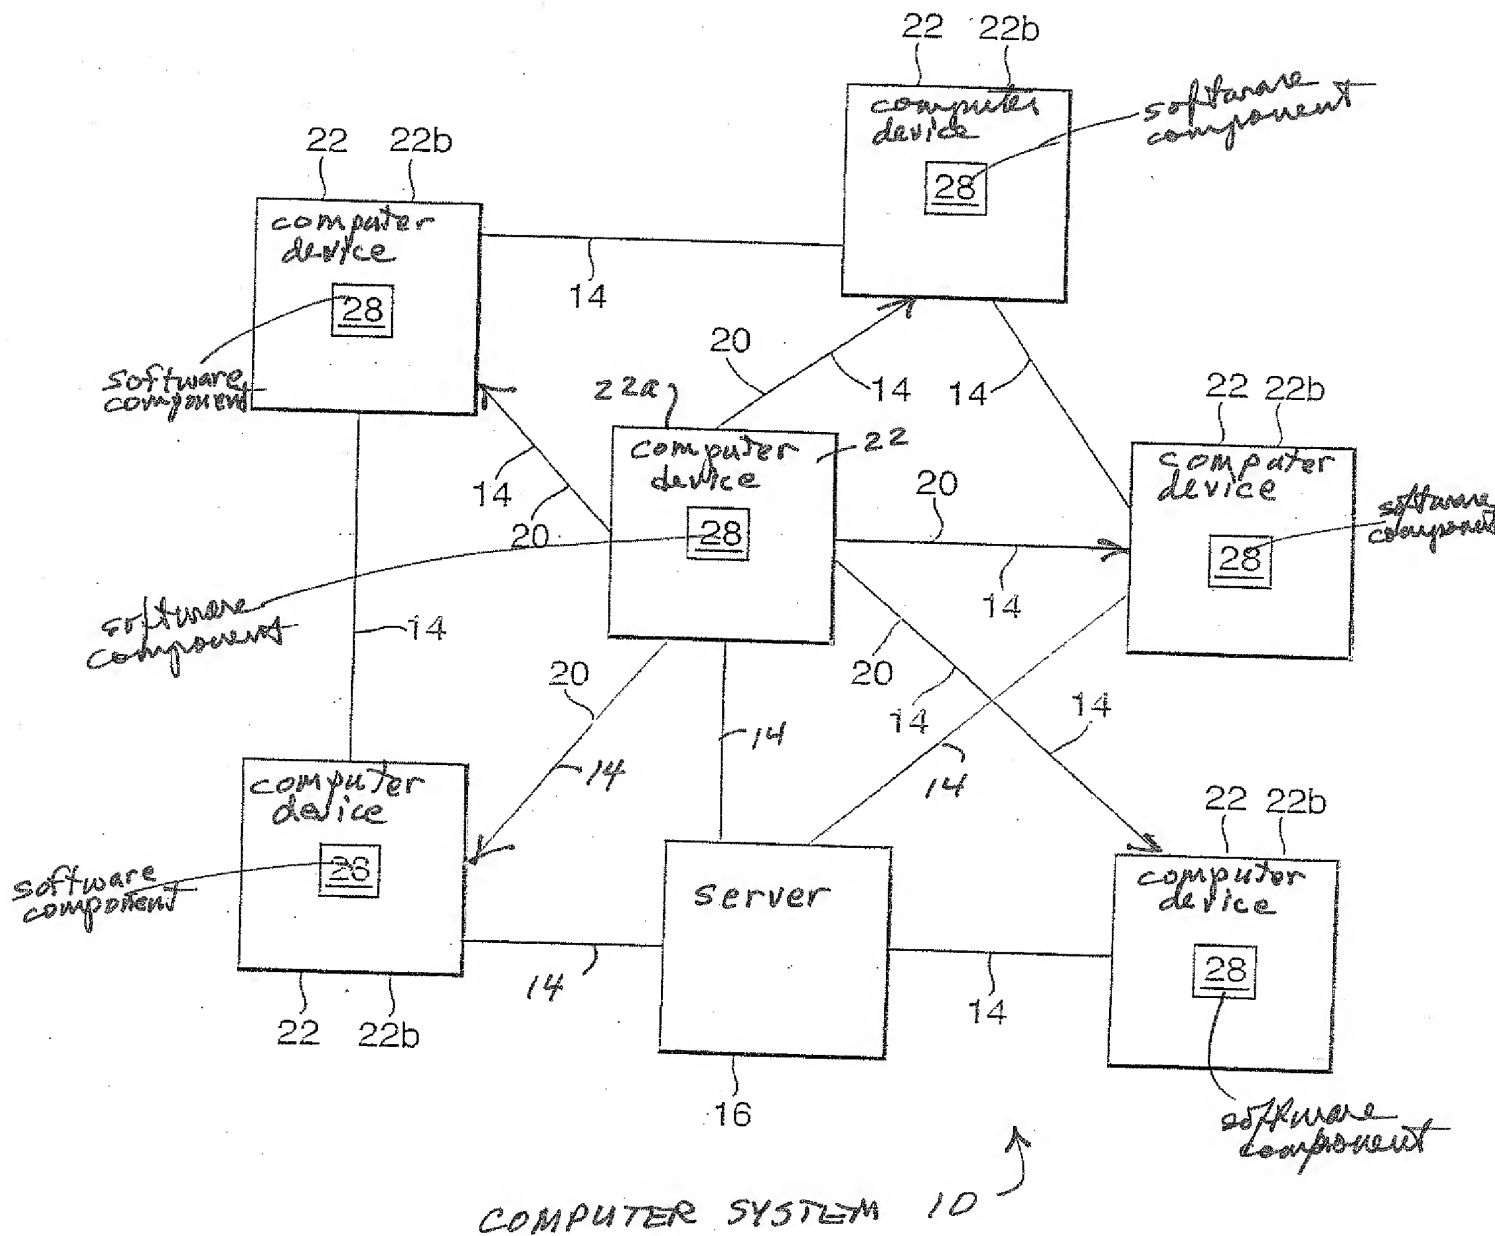 22 22b
computer
device
28
software
component
22 22b
computer
device
28
software
component
14
20
14
14
22a
computer
device
22
28
software
component
14
20
20
14
22 22b
computer
device
28
software
component
14
20
14
20
14
14
14
14
14
computer
device
28
software
component
22 22b
14
server
16
14
22 22b
computer
device
28
software
component
COMPUTER SYSTEM 10